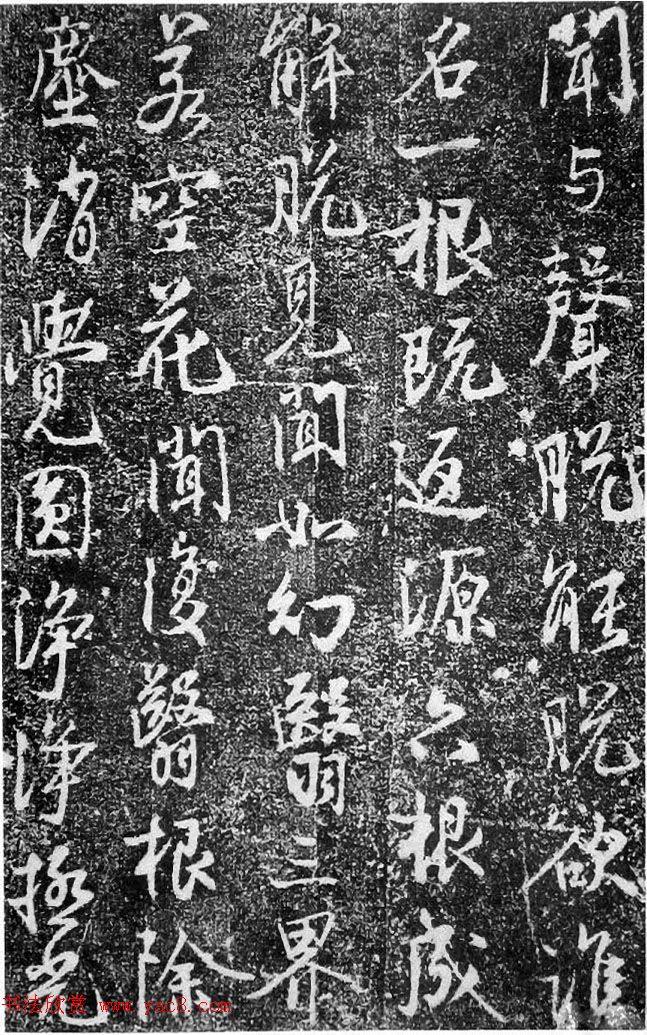 聞与聲脫能脫欲誰
名一根既返源六根成
解脫見聞如幻翳三界
若空花聞復翳根除
塵消覺圓浄浄極光
书法欣赏 www.yac8.com